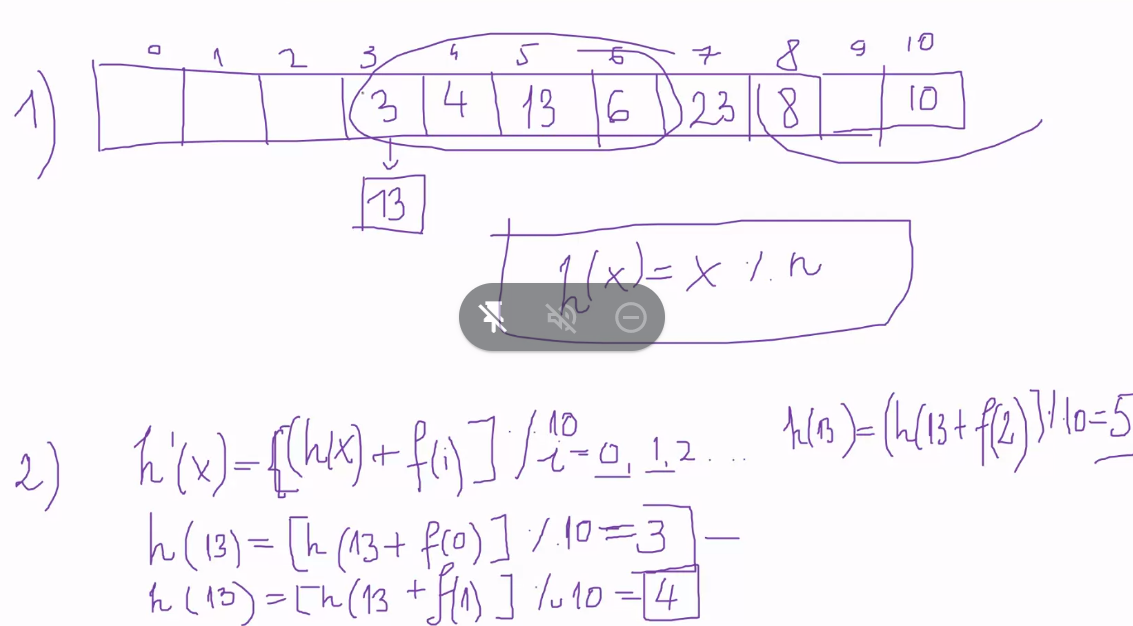 0 1 2 3 4 5 6 7 8 9 10
1) 3 4 13 6 23 8 10
13
h(x) = x % n
2) h'(x) = [(h(x) + f(i)] % 10 i = 0, 1, 2 ....
h(13) = (h(13 + f(2)] % 10 = 5
h(13) = [h(13 + f(0)] % 10 = 3
h(13) = [h(13 + f(1)] % 10 = 4